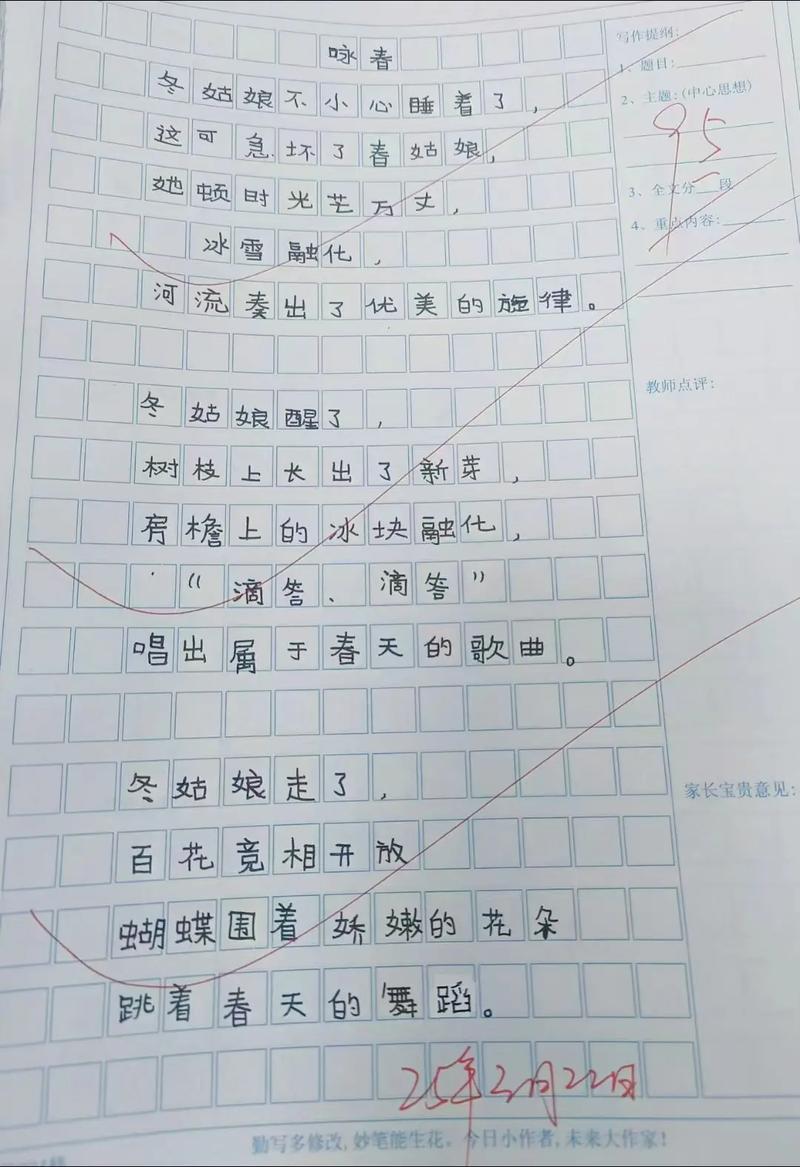 咏春
冬姑娘不小心睡着了，
这可急坏了春姑娘，
她顿时光芒万丈，
冰雪融化，
河流奏出了优美的旋律。
冬姑娘醒了，
树枝上长出了新芽，
房檐上的冰块融化，
“滴答、滴答”
唱出属于春天的歌曲。
冬姑娘走了，
百花竞相开放
蝴蝶围着娇嫩的花朵
跳着春天的舞蹈。
25年3月22日
写作提纲:
1、题目:
2、主题:(中心思想)
95
3、全文分 段
4、重点内容:
教师点评:
家长宝贵意见:
勤写多修改,妙笔能生花。今日小作者,未来大作家!